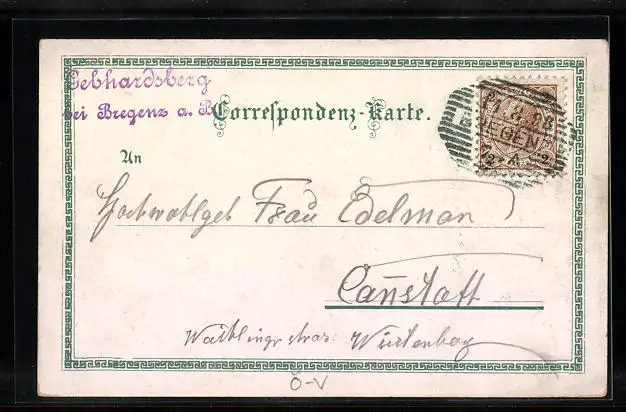 Gebhardsberg
bei Bregenz a. B
Correspondenz-Karte.
BREGENZ
2 2
An
Hochwohlgeb Frau Edelman
Cannstatt
Waiblingerstras: Würtenberg
Ö-V